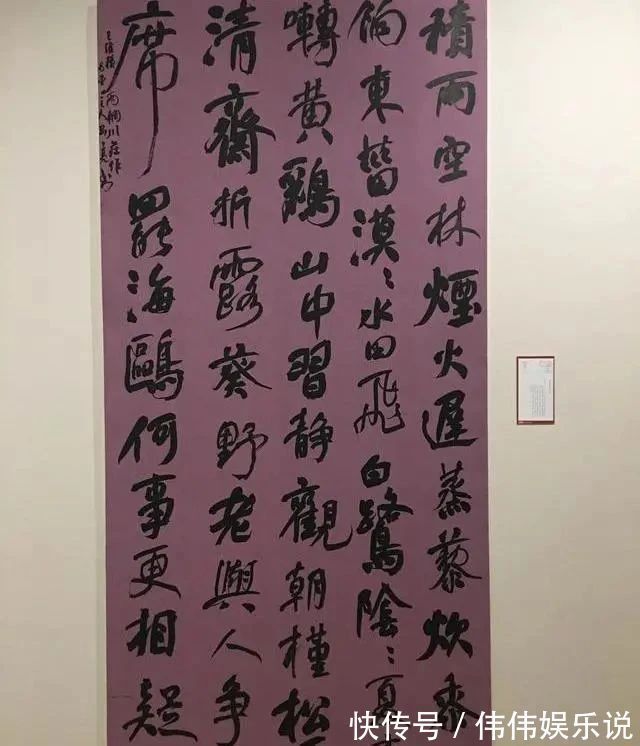 積雨空林煙火遲蒸藜炊黍
餉東菑漠〻水田飛白鷺陰〻夏
囀黃鸝山中習靜觀朝槿松
清齋折露葵野老與人爭
席罷海鷗何事更相疑
王維積雨輞川莊作
快传号 / 伟伟娱乐说